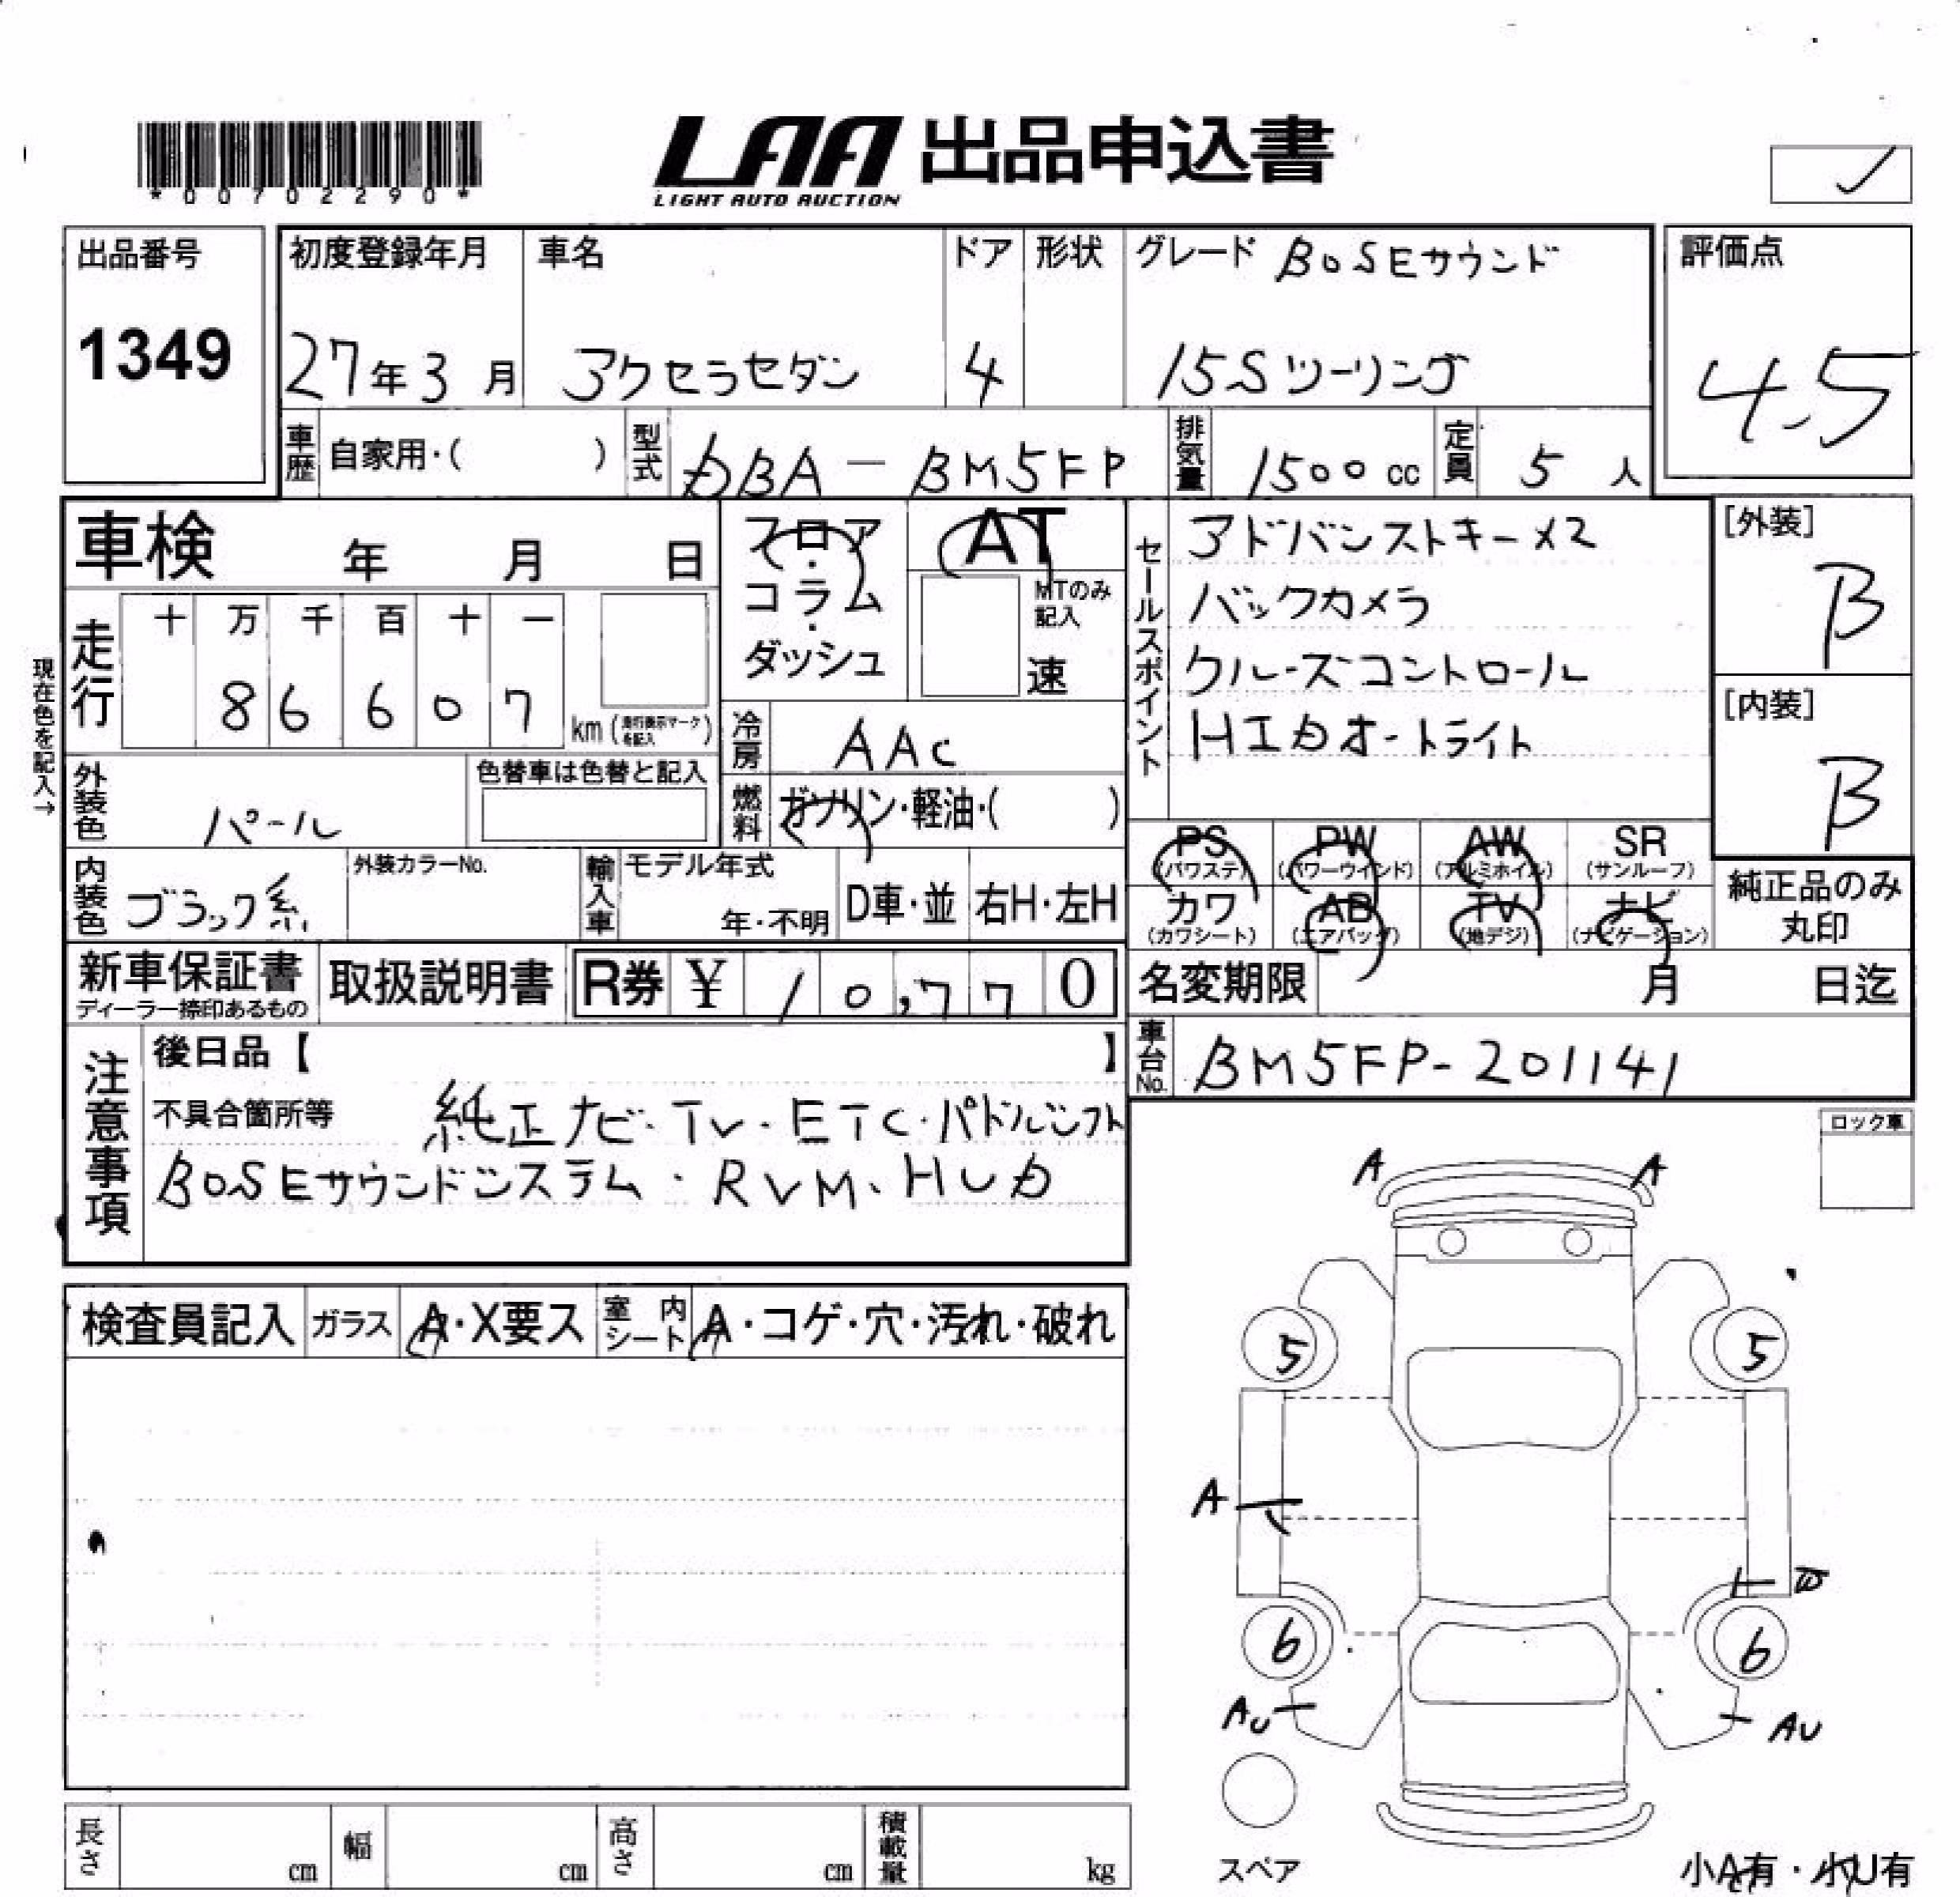 *00702290*
LAA 出品申込書
LIGHT AUTO AUCTION
出品番号
1349
初度登録年月
27年3月
車名
アクセラセダン
ドア
4
形状
グレード BOSEサウンド
15Sツーリング
評価点
4.5
車歴 自家用・( )
型式 DBA-BM5FP
排気量 1500cc
定員 5人
車検 年 月 日
フロア・コラム・ダッシュ
AT
MTのみ記入
速
セールスポイント
アドバンストキーx2
バックカメラ
クルーズコントロール
HIDオートライト
[外装]
B
[内装]
B
現在色を記入→
走行
十 万 千 百 十 一
8 6 6 0 7
km (走行表示マークを記入)
冷房 AAC
燃料 ガソリン・軽油・( )
外装色 パール
色替車は色替と記入
内装色 ブラック系
外装カラーNo.
輸入車 モデル年式
年・不明
D車・並
右H・左H
PS (パワステ)
PW (パワーウインド)
AW (アルミホイル)
SR (サンルーフ)
カワ (カワシート)
AB (エアバッグ)
TV (地デジ)
ナビ (ナビゲーション)
純正品のみ丸印
新車保証書
ディーラー捺印あるもの
取扱説明書
R券 ¥ 10,770
名変期限 月 日迄
車台No. BM5FP-201141
注意事項
後日品【 】
不具合箇所等 純正ナビ・TV・ETC・パドルシフト
BOSEサウンドシステム・RVM、HUD
ロック車
検査員記入
ガラス A・X要ス
室内シート A・コゲ・穴・汚れ・破れ
A A
5 5
A
6 6
AU AU
スペア
小A有・小U有
長さ cm
幅 cm
高さ cm
積載量 kg